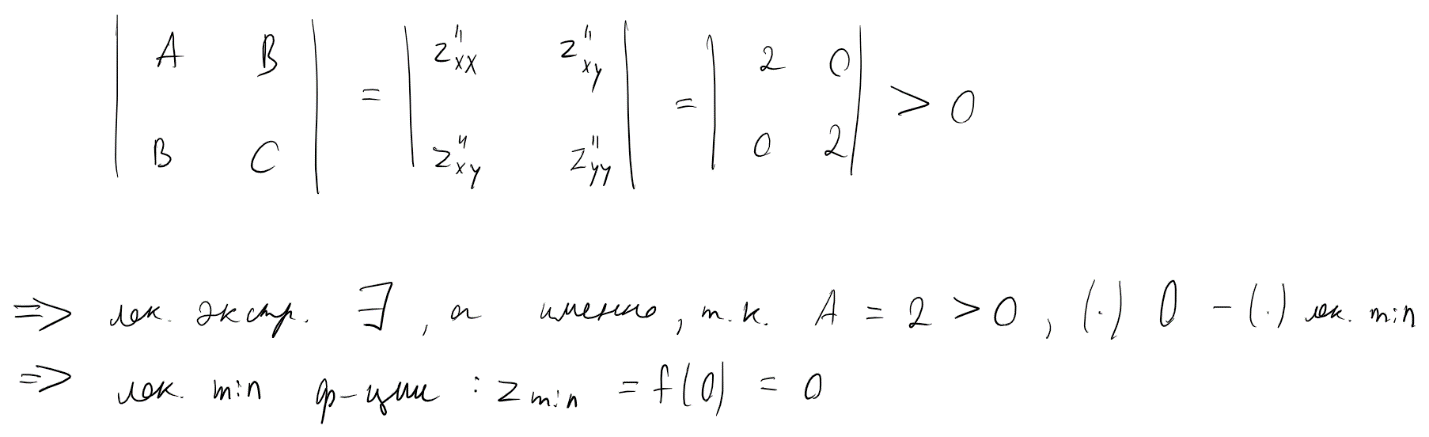 | A B | = | z''xx z''xy | = | 2 0 | > 0
| B C | | z''xy z''yy | | 0 2 |
=> лок. экстр. ∃, а именно, т.к. A = 2 > 0, (·) 0 – (·) лок. min
=> лок. min ф-ции : z min = f(0) = 0